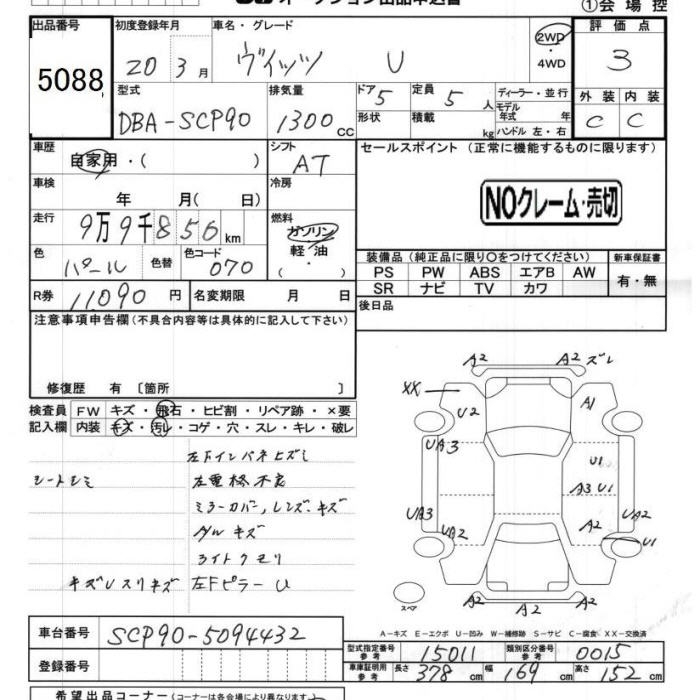 オークション出品申込書
①会場控
出品番号 初度登録年月 車名・グレード 2WD・4WD 評価点
5088 20年3月 ヴィッツ U 3
型式 排気量 ドア 5 定員 5人 ディーラー・並行 外装 内装
DBA-SCP90 1300cc 形状 積載 kg モデル年式 年 C C
ハンドル 左・右
車歴 自家用・( ) シフト AT セールスポイント (正常に機能するものに限ります)
車検 年 月(日) 冷房
NOクレーム・売切
走行 9万9千856km 燃料 ガソリン 軽油 ( ・ )
色 パール 色替 色コード 070
装備品(純正品に限り○をつけてください) 新車保証書
PS PW ABS エアB AW 有・無
SR ナビ TV カワ
R券 11,090円 名変期限 月 日 後日品
注意事項申告欄(不具合内容等は具体的に記入して下さい)
修復歴 有 〔箇所 〕
検査員 FW キズ・飛石・ヒビ割・リペア跡・×要
記入欄 内装 キズ・汚レ・コゲ・穴・スレ・キレ・破レ
シートシミ
左電格不良
ミラーカバー,レンズ、キズ
キズ
ライトクモリ
キズUスリキズ 左FピラーU
A2 A2 ズレ
XX U2 A1
UA3 U1
A3 U1
UA3 UA2 A2 UA2
U1
A2 A2
スペア
A-キズ E-エクボ U-凹み W-補修跡 S-サビ C-腐食 XX-交換済
車台番号 SCP90-5094432
登録番号
型式指定番号 参考 15011 類別区分番号 参考 0015
車庫証明用 参考 長さ 378cm 幅 169cm 高さ 152cm
希望出品コーナー(コーナーは各会場により異なります)